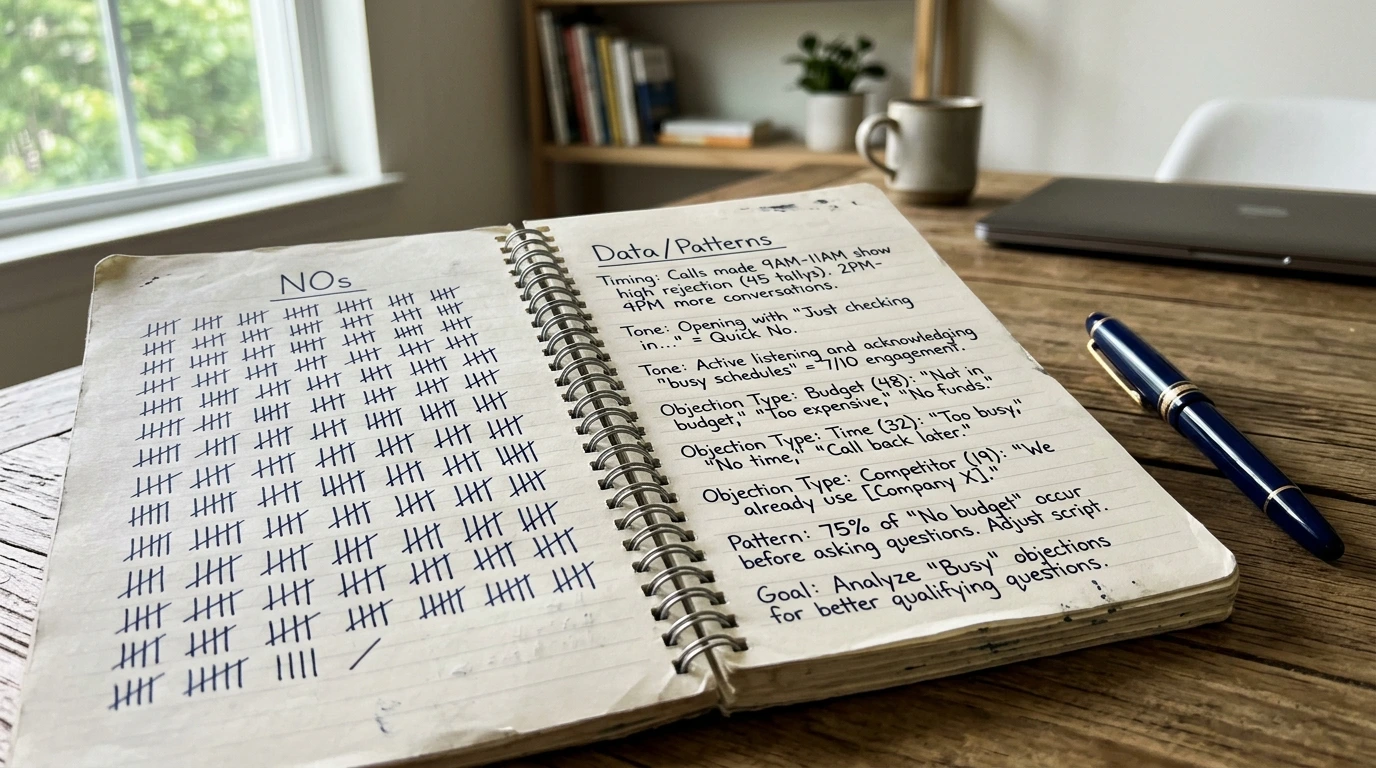 NOs
Data/Patterns
Timing: Calls made 9AM-11AM show
high rejection (45 tallys). 2PM-
4PM more conversations.
Tone: Opening with "Just checking
in..." = Quick No.
Tone: Active listening and acknowledging
"busy schedules" = 7/10 engagement.
Objection Type: Budget (48): "Not in
budget," "Too expensive," "No funds."
Objection Type: Time (32): "Too busy,"
"No time," "Call back later."
Objection Type: Competitor (19): "We
already use [Company X]."
Pattern: 75% of "No budget" occur
before asking questions. Adjust script.
Goal: Analyze "Busy" objections
for better qualifying questions.